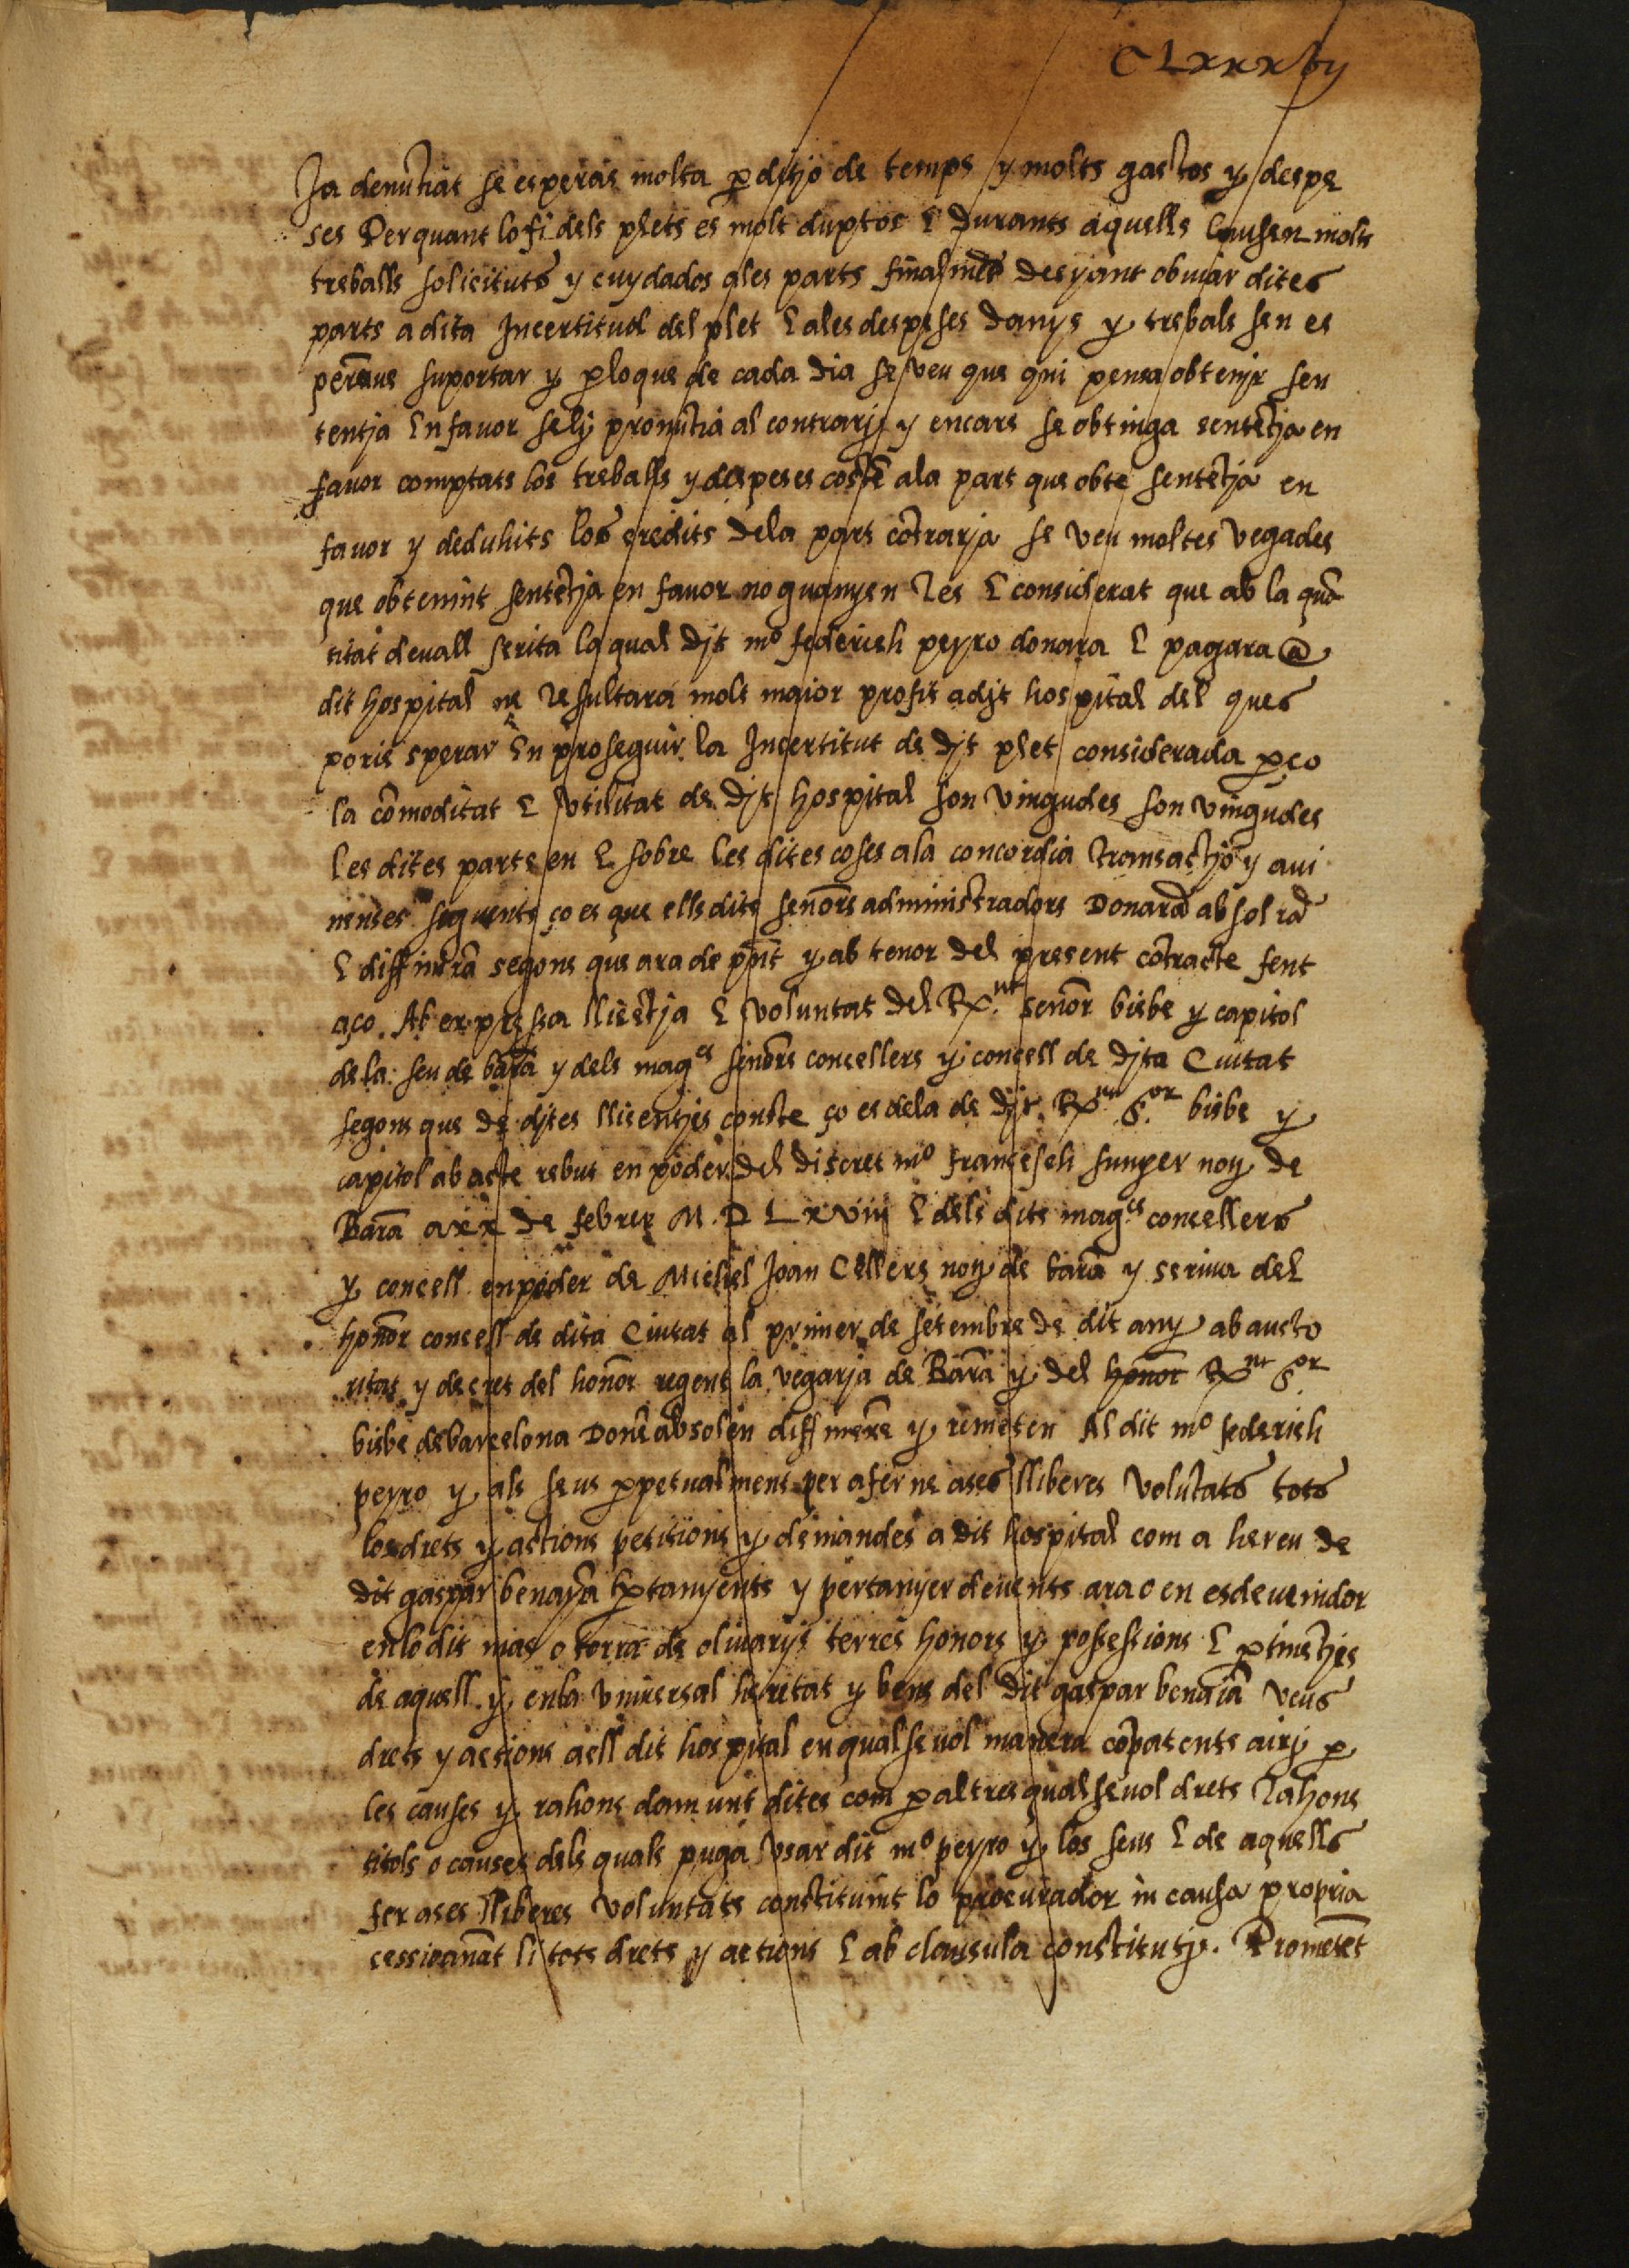 CLxxxvij
Ja denũtiat se esperas molta ꝑditjo de temps y molts gastos y despe
ses Perquant lo fi dels plets es molt duptos E Durants aquells causen molts
treballs solicituts y cuydados a les parts finalmẽt Desijant obuiar dites
parts a dita Incertitud del plet E ales despeses Danys y trebals sen es
perauẽ suportar y ꝑloque de cada dia se veu que qui pensa obtenir sen
tentja En fauor selj pronũtia al contrarj y encare se obtinga sentẽtja en
fauor comptats los treballs y despeses costẽ ala part que obte sentẽtja en
fauor y deduhits los credits Dela part cõtrarja se veu moltes vegades
que obtenint sentẽtja en fauor no guanyen Res E considerat que ab la quã
titat deuall scrita la qual Djt mº federich peyro donara E pagara a
dit hospital ne Resultara molt maior profit a djt hospital del ques
poria sperar En proseguir la Incertitut de djt plet considerada ꝑço
la cõmoditat E vtilitat de Djt hospital son vingudes son vingudes
les dites parts en E sobre les dites coses ala concordia Transactjo y aui
nenses seguents ço es que ells dits señors administradors Donarã absolrã
E diffinirã segons que ara de pñt y ab tenor del present cõtracte fent
aço Ab expressa llicẽtja E voluntat del Rx.nt señor bisbe y capitol
de la seu de barã y dels mag.es señors concellers y concell de Djta Ciutat
segons que de djtes llicentjes conste ço es dela de djt Rx.nt S.or bisbe y
capitol ab acte rebut en poder del discret mº francesch sunyer noy de
Barã a xx de febrer M.D Lxviiij E dels dits mag.es concellers
y concell en poder de Michel Joan Cellers noy de barã y scriua del
hoñor concell de dita Ciutat al primer de setembre de dit any ab aucto
ritat y decret del hoñor regent la vegarja de Barã y del hoñor Rx.nt S.or
bisbe de barcelona Donẽ absolen diffinexẽ y remeten Al dit mº federich
peyro y als seus ꝑpetualment per a fer ne a ses lliberes volũtats tots
los drets y actions petitions y demandes a dit hospital com a hereu de
dit gaspar benayã ꝑtanyents y pertanyer deuents ara o en esdeuenidor
en lo dit mas o torra de oliuarijs terres honors y possessions E ꝑtinẽtjes
de aquell y en la vniuersal heretat y bens del dit gaspar benaiã Veus
drets y actions a ell dit hospital en qualseuol manera cõpatents aixj ꝑ
les causes y rahons damunt dites com ꝑ altres qualseuol drets Rahons
titols o causes dels quals puga vsar dit mº peyro y los seus E de aquells
fer a ses lliberes voluntats constituint lo procurador in causa propria
cessionãnt li tots drets y actions E ab clausula constitutj. Prometẽt